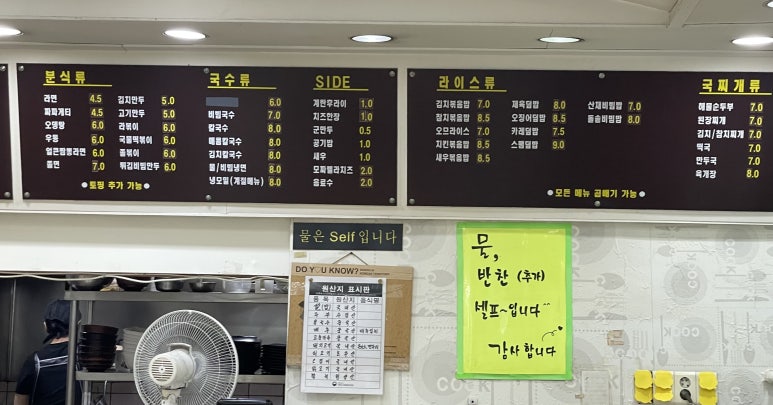 분식류
라면 4.5
짜파게티 4.5
오뎅탕 6.0
우동 6.0
얼큰짬뽕라면 6.0
쫄면 7.0
김치만두 5.0
고기만두 5.0
라볶이 6.0
국물떡볶이 6.0
쫄볶이 6.0
튀김비빔만두 6.0
●토핑 추가 가능●
국수류
6.0
비빔국수 7.0
칼국수 8.0
매콤칼국수 8.0
김치칼국수 8.0
물/비빔냉면 8.0
냉모밀(계절메뉴) 8.0
SIDE
계란후라이 1.0
치즈한장 1.0
군만두 0.5
공기밥 1.0
새우 1.0
모짜렐라치즈 2.0
음료수 2.0
라이스류
김치볶음밥 7.0
참치볶음밥 8.5
오므라이스 7.0
치킨볶음밥 8.5
새우볶음밥 8.5
제육덮밥 8.0
오징어덮밥 8.5
카레덮밥 7.5
스팸덮밥 9.0
산채비빔밥 7.0
돌솥비빔밥 8.0
●모든 메뉴 곱빼기 가능●
국찌개류
해물순두부 7.0
된장찌개 7.0
김치/참치찌개 7.0
떡국 7.0
만두국 7.0
육개장 8.0
물은 Self입니다
DO YOU KNOW?
원산지 표시판
품목 원산지 음식명
물,
반찬 (추가)
셀프~입니다^^
감사합니다
COOK
COOK
COOK